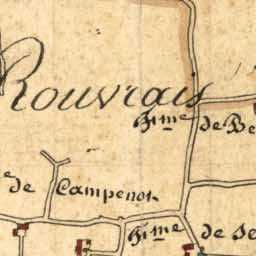 Rouvrais
H.me de Be
de Campenot
H.me de Se